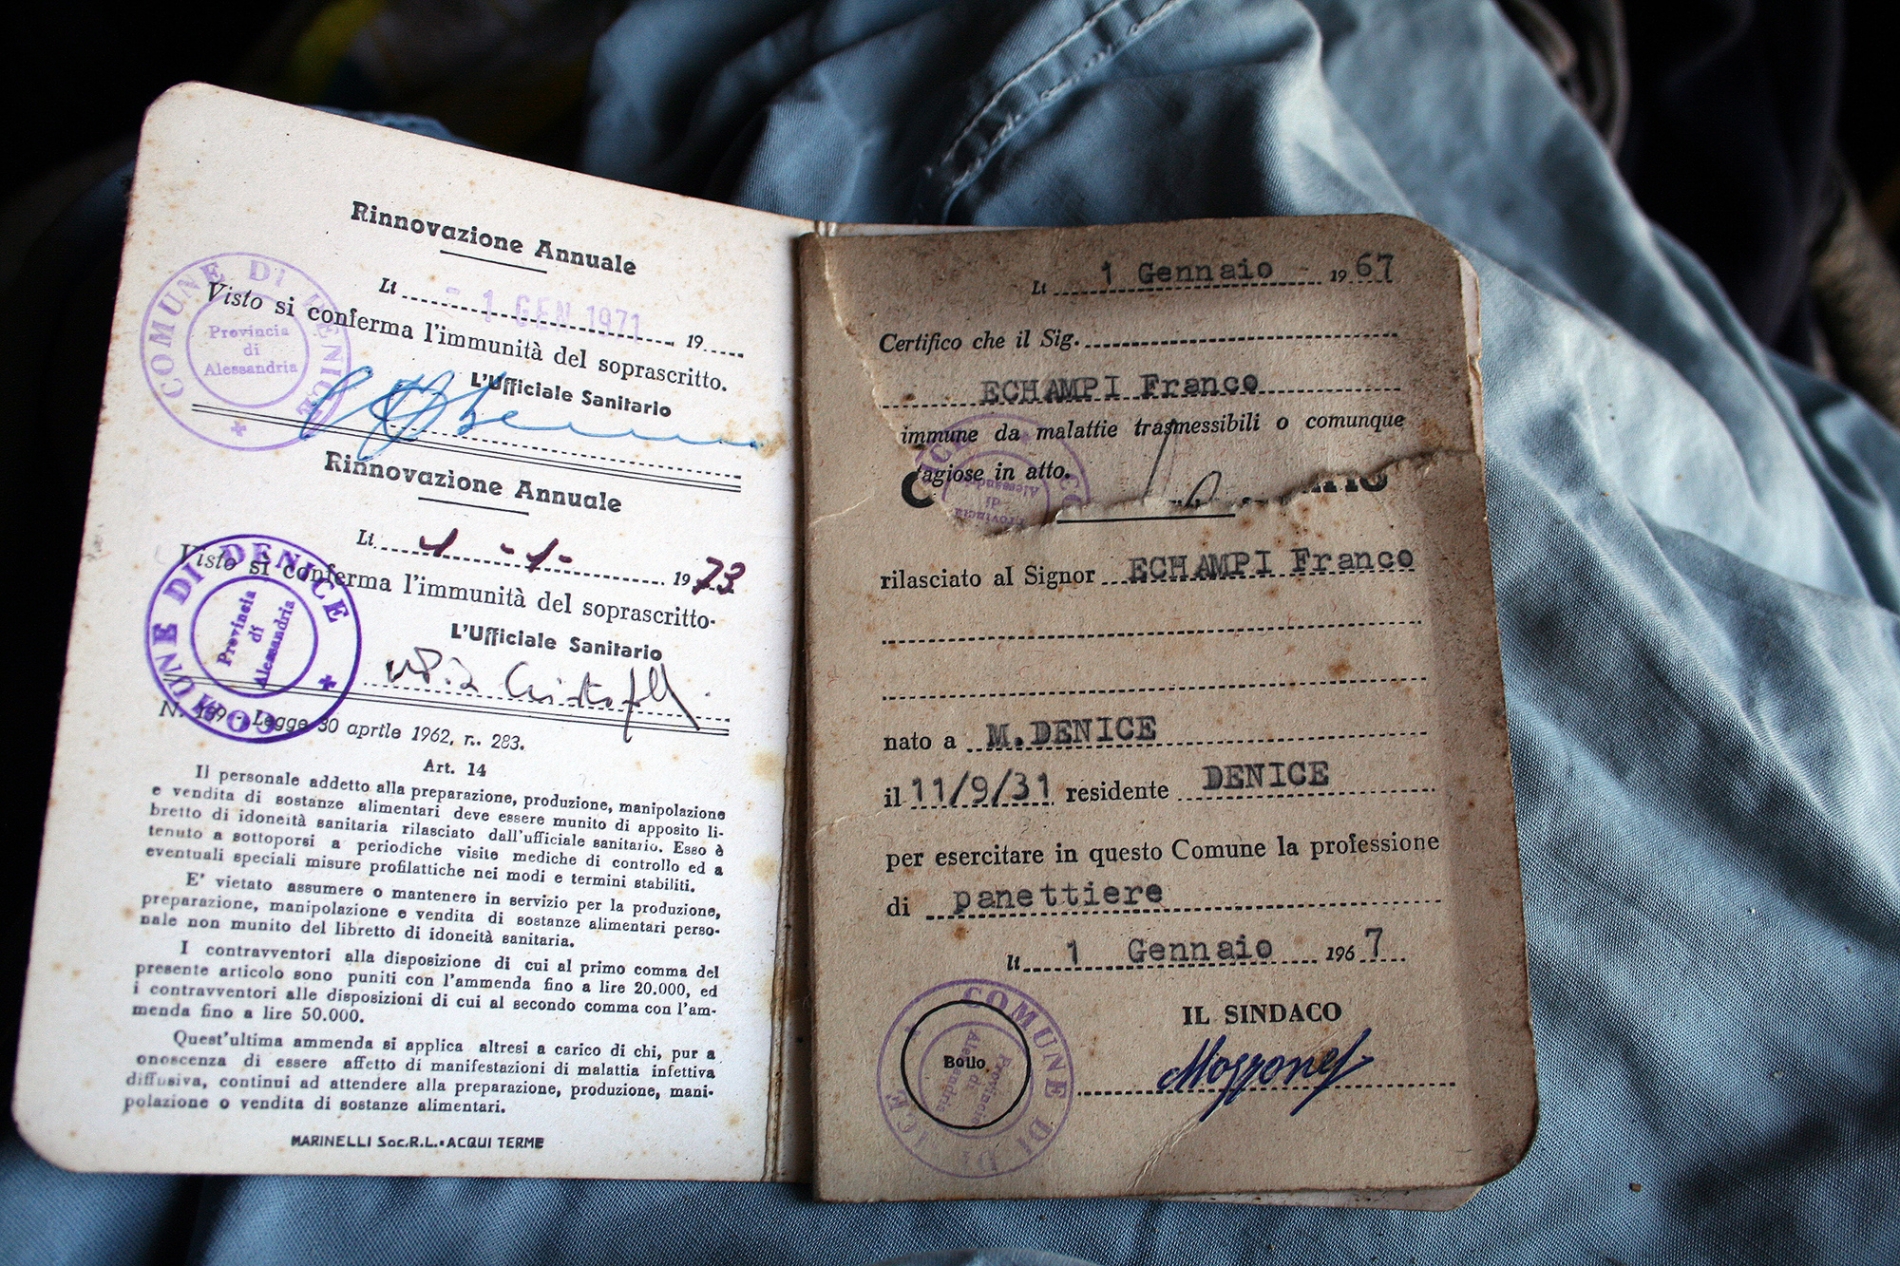 Rinnovazione Annuale
Li - 1 GEN 1971 19
Visto si conferma l'immunità del soprascritto.
L'Ufficiale Sanitario
COMUNE DI DENICE
Provincia
di
Alessandria
Rinnovazione Annuale
Li 1 - 1 - 1973
Visto si conferma l'immunità del soprascritto.
L'Ufficiale Sanitario
COMUNE DI DENICE
Provincia
di
Alessandria
Legge 30 aprile 1962, n. 283.
Art. 14
Il personale addetto alla preparazione, produzione, manipolazione
e vendita di sostanze alimentari deve essere munito di apposito li-
bretto di idoneità sanitaria rilasciato dall'ufficiale sanitario. Esso è
tenuto a sottoporsi a periodiche visite mediche di controllo ed a
eventuali speciali misure profilattiche nei modi e termini stabiliti.
E' vietato assumere o mantenere in servizio per la produzione,
preparazione, manipolazione e vendita di sostanze alimentari perso-
nale non munito del libretto di idoneità sanitaria.
I contravventori alla disposizione di cui al primo comma del
presente articolo sono puniti con l'ammenda fino a lire 20.000, ed
i contravventori alle disposizioni di cui al secondo comma con l'am-
menda fino a lire 50.000.
Quest'ultima ammenda si applica altresì a carico di chi, pur a
onoscenza di essere affetto di manifestazioni di malattia infettiva
diffusiva, continui ad attendere alla preparazione, produzione, mani-
polazione o vendita di sostanze alimentari.
MARINELLI Soc.R.L.-ACQUI TERME
Li 1 Gennaio - 1967
Certifico che il Sig.
ECHAMPI Franco
immune da malattie trasmessibili o comunque
tagiose in atto.
Provincia
di
Alessandria
rilasciato al Signor ECHAMPI Franco
nato a M.DENICE
il 11/9/31 residente DENICE
per esercitare in questo Comune la professione
di panettiere
li 1 Gennaio 1967
IL SINDACO
Bollo
COMUNE DI DENICE
Provincia
di
Alessandria